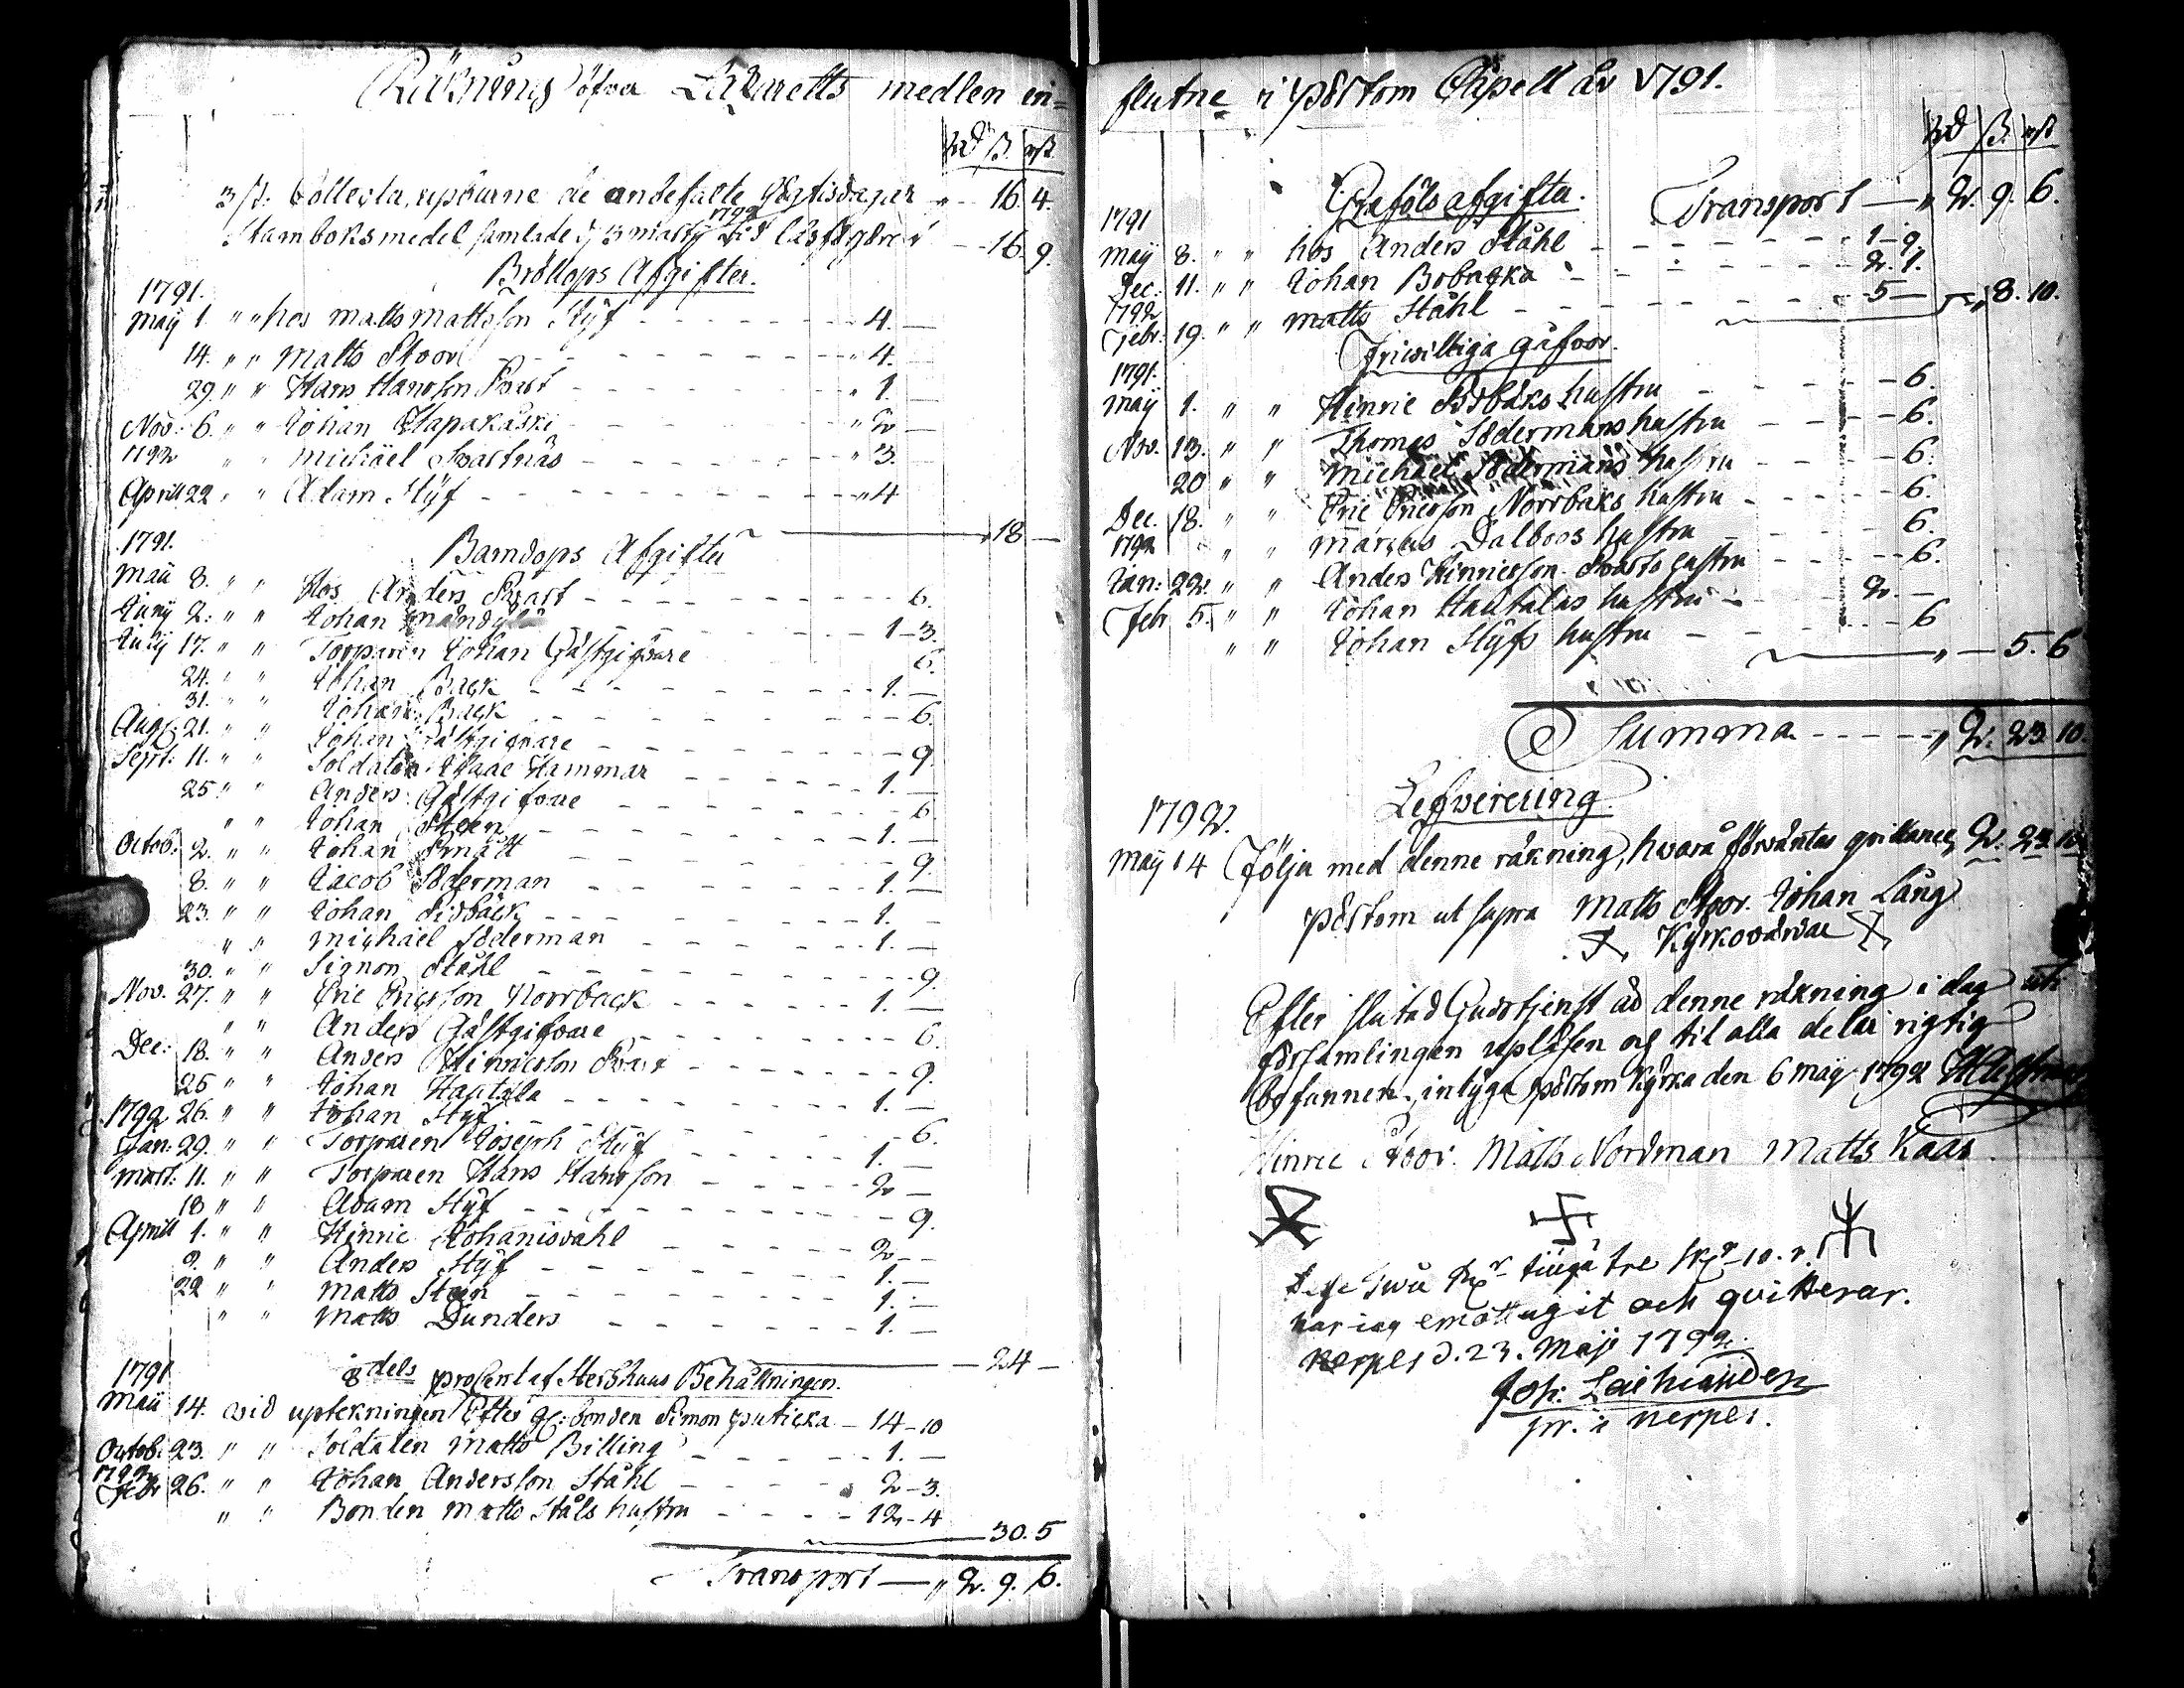 Räkning öfver Lazaretts medlen in=
Rd ß. rst.
3 st: Collecta, upburne de anbefalte Högtidsdagar „ – 16. 4.
Stamboksmedel samlade 1792 vid Läsförhören – 16. 9.
Bröllops Afgifter.
1791.
Maij 1. „ „ hos Matts Mattsson Styf – 4. –
14. „ „ Matts Stoor – „ 4. –
29. „ „ Hans Hansson Svart – „ 1. –
Nov: 6. „ „ Johan Hapakåski – „ 2 –
1792 „ „ Michäel Svartnäs – „ 3. –
April 22 „ „ Adam Styf – „ 4
– 18 –
1791. Barndops Afgifter
Maij 8. „ „ Hos Anders Svart – 6.
Junij 2. „ „ Johan – 1–3.
Julij 17. „ „ Torparen Johan Gästgifvare 6.
24. „ „ Johan Back – 1. –
31. „ „ Johan Back – 6.
Aug: 21. „ „ Johan Gästgifvare – 9
Sept: 11. „ „ Soldaten Isaac Hammar – 1. –
25 „ „ Anders Gästgifvare – 6
„ „ Johan Steen – 1. –
Octob: 2. „ „ Johan Smått – 9.
8. „ „ Jacob Söderman – 1. –
23. „ „ Johan Sidbäck – 1. –
„ „ Michäel Söderman – 1. –
30. „ „ Simon Ståhl – 9.
Nov. 27. „ „ Eric Ericsson Norrback – 1. –
„ „ Anders Gästgifvare – 6.
Dec: 18. „ „ Anders Hinricsson Svart – 9.
25 „ „ Johan Hautala – 1. –
1792 26. „ „ Johan Styf – 6.
Jan: 29. „ „ Torparen Joseph Styf – 1. –
Mart: 11. „ „ Torparen Hans Hansson – 2 –
18 „ „ Adam Styf – 9.
April 1. „ „ Hinric Johanisdahl – 2 –
9. „ „ Anders Styf – 1. –
22 „ „ Matts Steen – 1. –
„ „ Matts Dunders – 1. –
– 24 –
1791 8dels procent af Sterbhuus Behållningen.
Maij 14. vid uptekningen Efter Bonden Simon – 14–10
Octob: 23. „ „ Soldaten Matts Billing – 1. –
1792
Febr 26. „ „ Johan Andersson Ståhl – 2–3.
„ „ Bonden Matts Ståls hustru – 12–4
– 30. 5
Transport – „ 2. 9. 6.
flutne i Påstom Capell år 1791.
Rd ß. rst
Grafölsafgifter. Transport – „ 2. 9. 6.
1791
Maij 8. „ „ hos Anders Ståhl – 1–9.
Dec: 11. „ „ Johan Bobacka – 2. 1.
1792
Febr: 19. „ „ Matts Ståhl – 5 –
– „ 8. 10.
Friwilliga gåfvor.
1791.
Maij 1. „ „ Hinric Sidbäks hustru – 6.
Nov. 13. „ „ Thomas Södermans hustru – 6.
20 „ „ Michael Södermans hustru – 6.
Dec. 18. „ „ Eric Ericsson Norrbaks hustru – 6.
1792 „ „ Marcus Dalboos hustru – 6.
Jan: 22. „ „ Anders Hinricsson Svarts hustru – 6.
Feb 5. „ „ Johan Hautalas hustru – 2. –
„ „ Johan Styfs hustru – 6
„ – 5. 6
Summa – „ 2. 23 10.
Lefverering
1792.
Maij 14 Följa med denne räkning, hvarå förväntas qvittance, 2. 23 10
Påstom ut supra Matts Stoor. Johan Lång
Kyrkovärdar
Efter slutad Gudstjenst är denne räkning i dag uti
församlingen upläsen och til alla delar rigtig
befunnen, intyga Påstom Kyrka den 6 Maij 1792
Hinric Stoor. Matts Nordman Matts Kaas.
Dessa Twå Rdr tiugu tre sk 10. r.
har jag emottagit och qvitterar.
Nerpes d. 23. Maji 1792.
Joh: Laihiander
pr. i Nerpes.